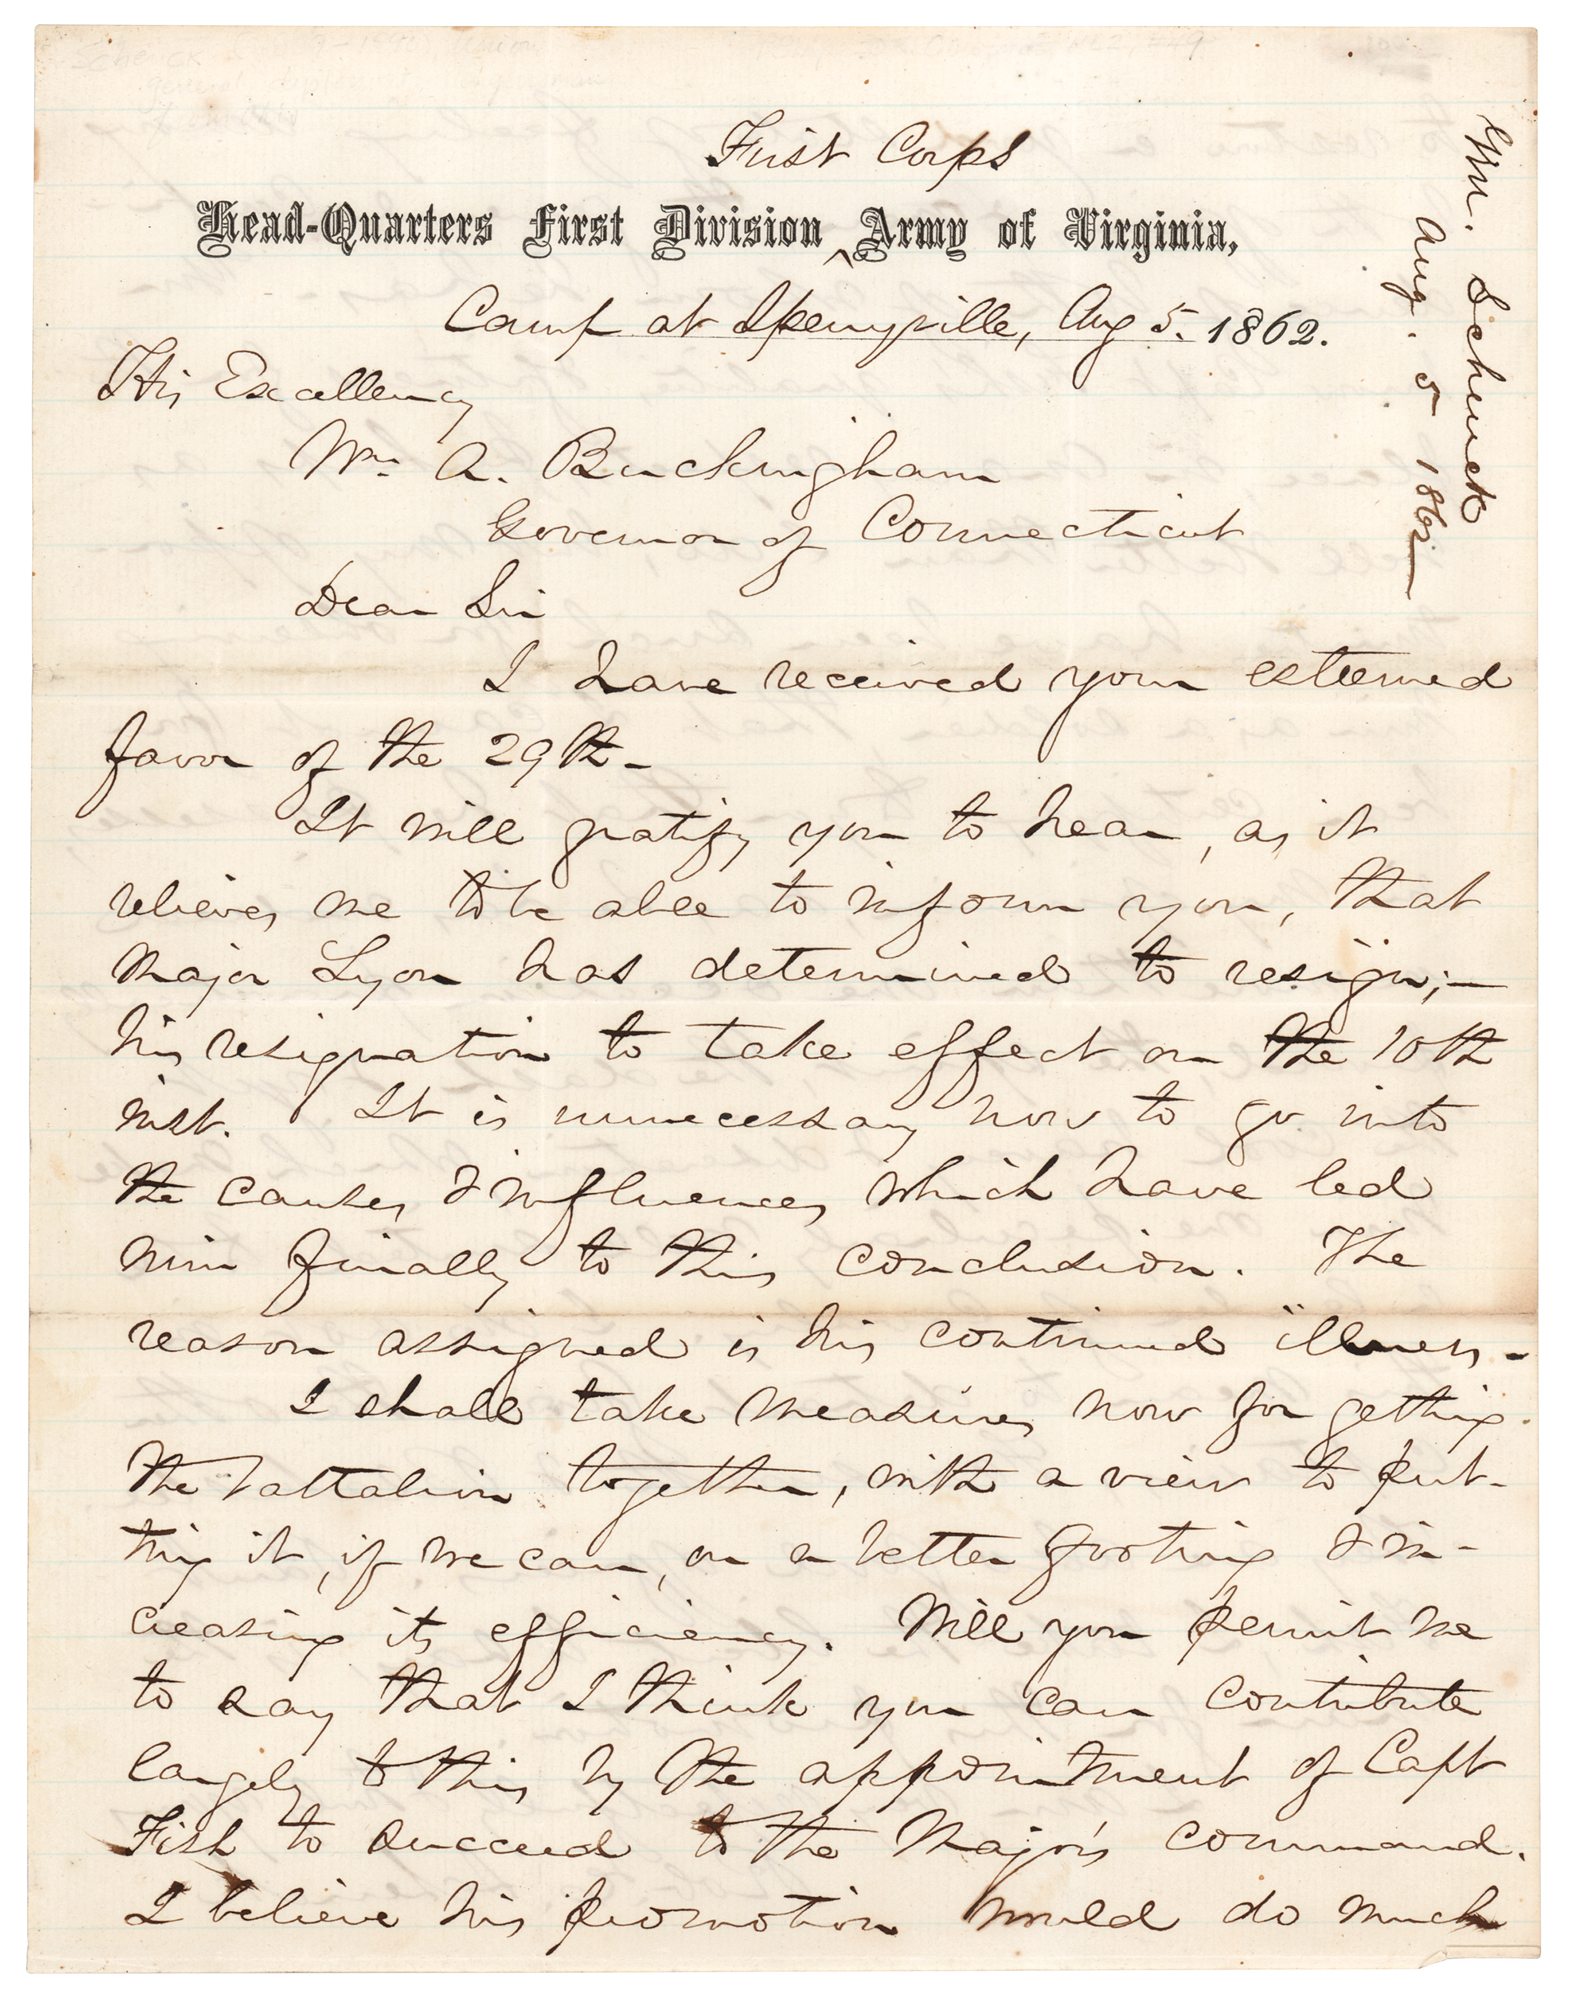 First Corps
Head-Quarters First Division ^ Army of Virginia,
Camp at Sperryville, Aug 5. 1862.
Gen. Schenck
Aug. 5 1862
His Excellency
Wm. A. Buckingham
Governor of Connecticut
Dear Sir
I have received your esteemed
favor of the 29th-
It will gratify you to hear, as it
relieves me to be able to inform you, that
Major Lyon has determined to resign;-
his resignation to take effect on the 10th
inst. It is unnecessary now to go into
the causes & influences which have led
him finally to this conclusion. The
reason assigned is his continued illness-
I shall take measures now for getting
the battalion together, with a view to put-
ting it, if we can, on a better footing & in-
creasing its efficiency. Will you permit me
to say that I think you can contribute
largely to this by the appointment of Capt
Fish to succeed to the Major's command.
I believe his promotion would do much